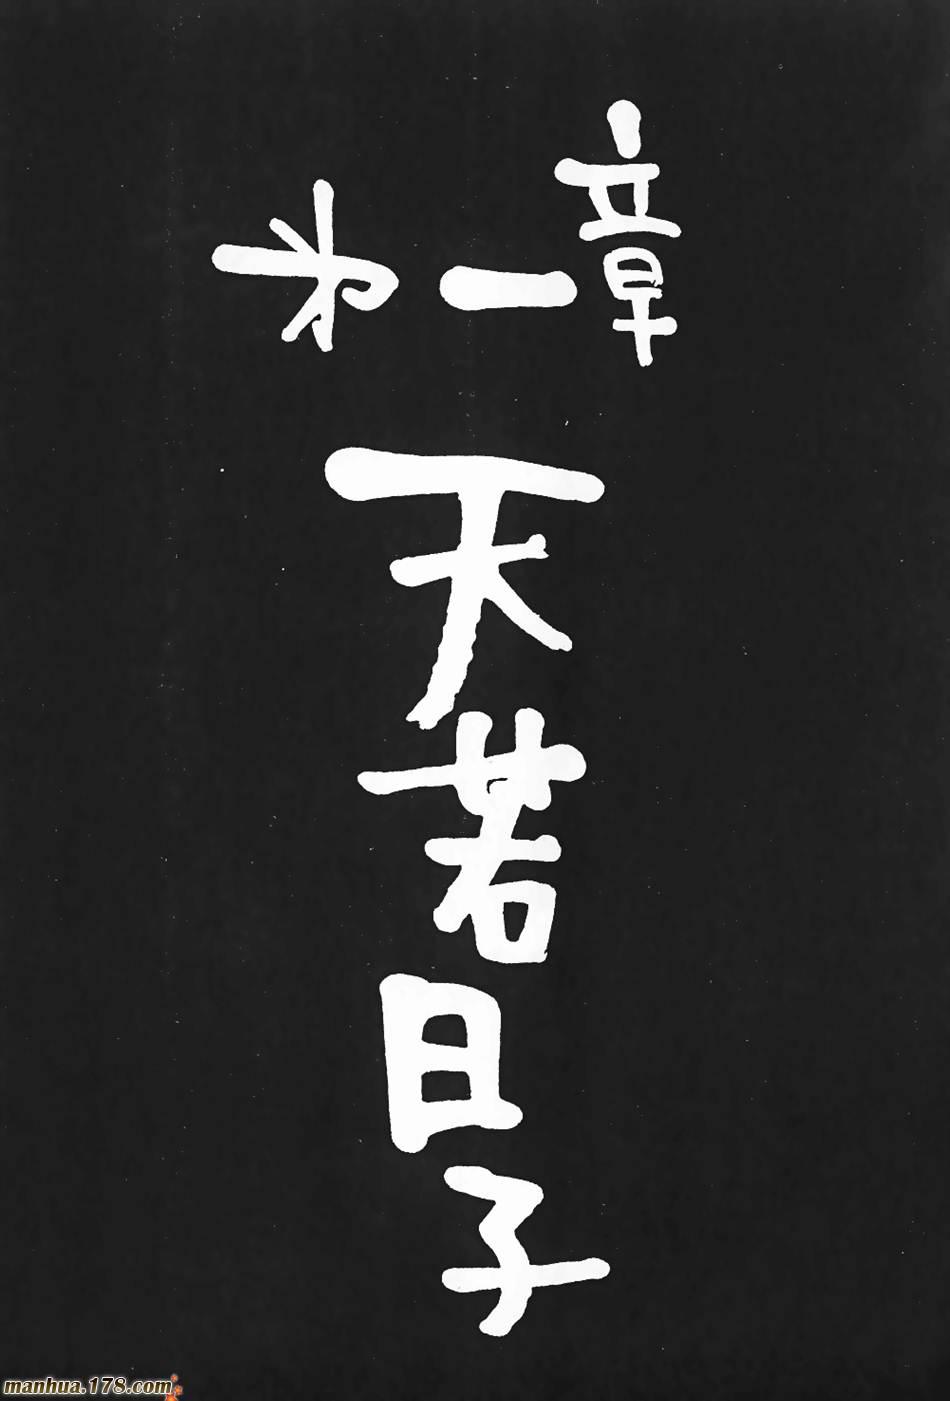 㐧一章
天若日子
manhua.178.com